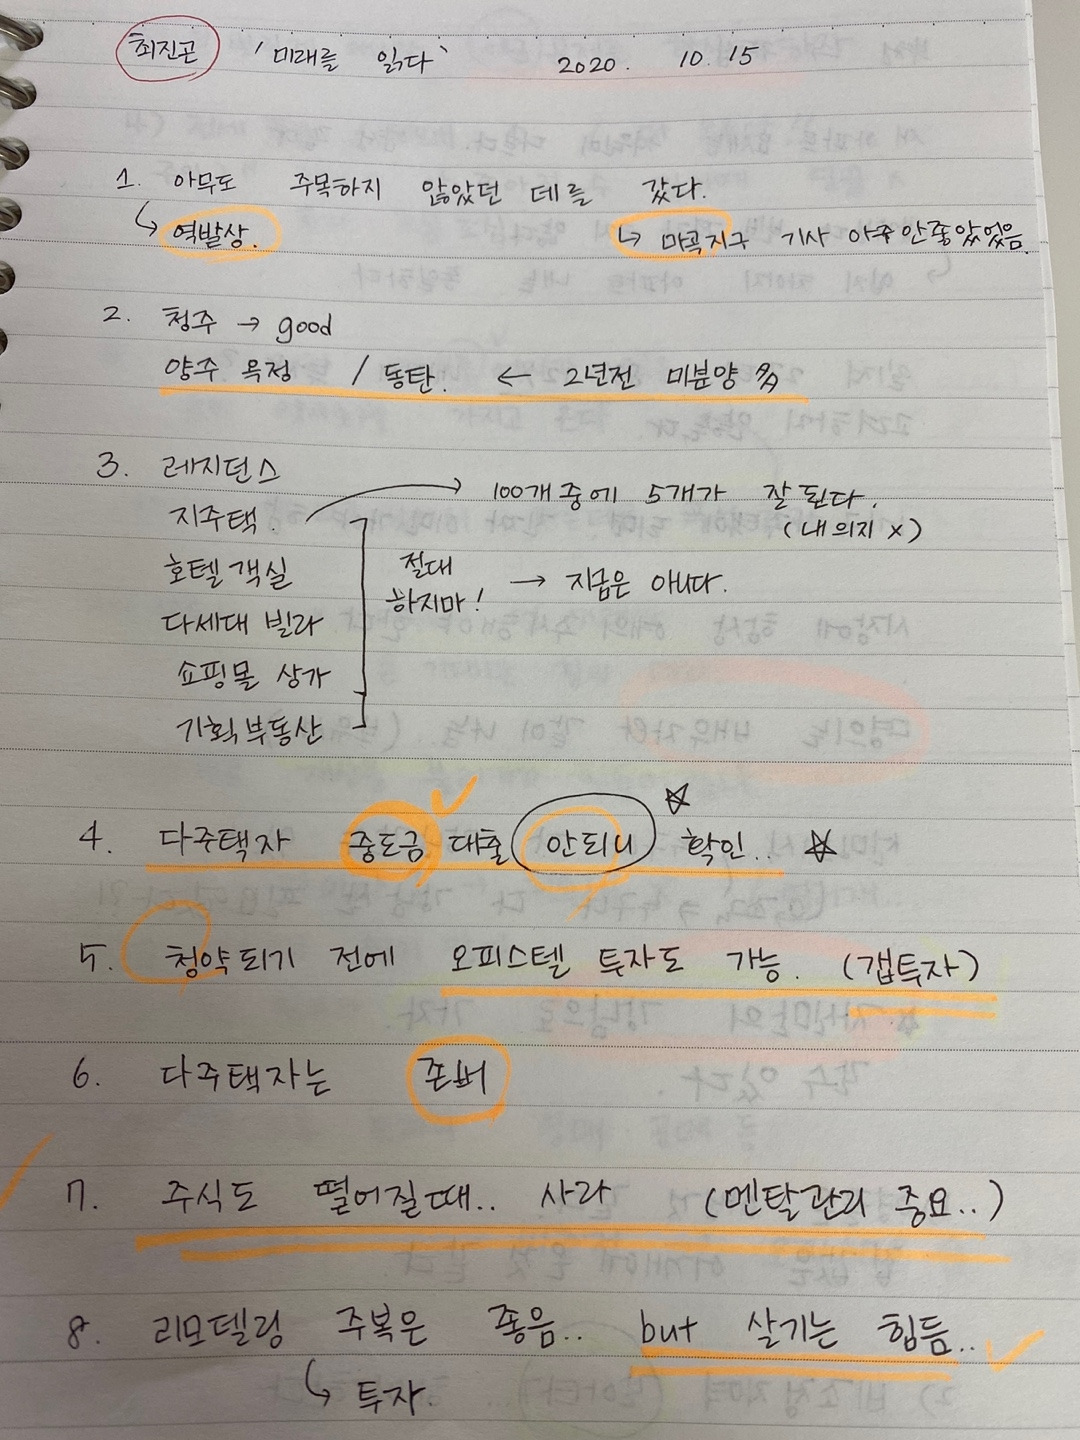 최진곤 '미래를 읽다' 2020. 10. 15
1. 아무도 주목하지 않았던 데를 갔다.
↳ 역발상. ↳ 마곡지구 기사 아주 안좋았었음
2. 청주 → good
양주 옥정 / 동탄. ← 2년전 미분양 多
3. 레지던스
지주택. → 100개중에 5개가 잘 된다.
(내 의지 x)
호텔 객실
절대 하지마! → 지금은 아니다.
다세대 빌라
쇼핑몰 상가
기획부동산
4. 다주택자 중도금 대출 안되니 확인.. ☆ ☆
5. 청약되기 전에 오피스텔 투자도 가능. (갭투자)
6. 다주택자는 존버
7. 주식도 떨어질때.. 사라 (멘탈관리 중요..)
8. 리모델링 주복은 좋음.. but 살기는 힘듬..
↳ 투자.